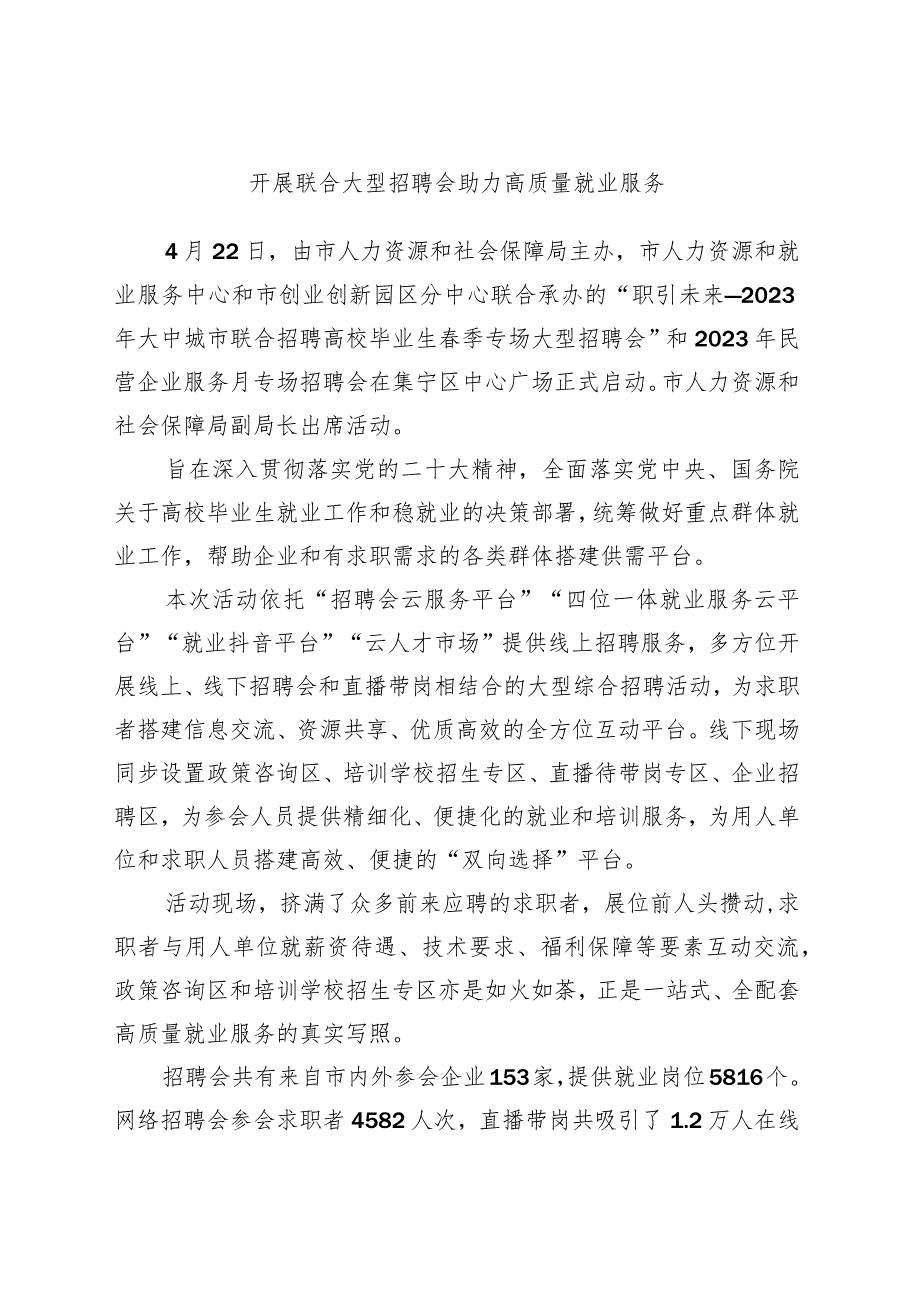 开展联合大型招聘会助力高质量就业服务
4月22日，由市人力资源和社会保障局主办，市人力资源和就
业服务中心和市创业创新园区分中心联合承办的“职引未来—2023
年大中城市联合招聘高校毕业生春季专场大型招聘会”和2023年民
营企业服务月专场招聘会在集宁区中心广场正式启动。市人力资源和
社会保障局副局长出席活动。
旨在深入贯彻落实党的二十大精神，全面落实党中央、国务院
关于高校毕业生就业工作和稳就业的决策部署,统筹做好重点群体就
业工作，帮助企业和有求职需求的各类群体搭建供需平台。
本次活动依托“招聘会云服务平台”“四位一体就业服务云平
台”“就业抖音平台”“云人才市场”提供线上招聘服务，多方位开
展线上、线下招聘会和直播带岗相结合的大型综合招聘活动，为求职
者搭建信息交流、资源共享、优质高效的全方位互动平台。线下现场
同步设置政策咨询区、培训学校招生专区、直播待带岗专区、企业招
聘区，为参会人员提供精细化、便捷化的就业和培训服务，为用人单
位和求职人员搭建高效、便捷的“双向选择”平台。
活动现场，挤满了众多前来应聘的求职者，展位前人头攒动,求
职者与用人单位就薪资待遇、技术要求、福利保障等要素互动交流，
政策咨询区和培训学校招生专区亦是如火如荼，正是一站式、全配套
高质量就业服务的真实写照。
招聘会共有来自市内外参会企业153家,提供就业岗位5816个。
网络招聘会参会求职者4582人次，直播带岗共吸引了1.2万人在线